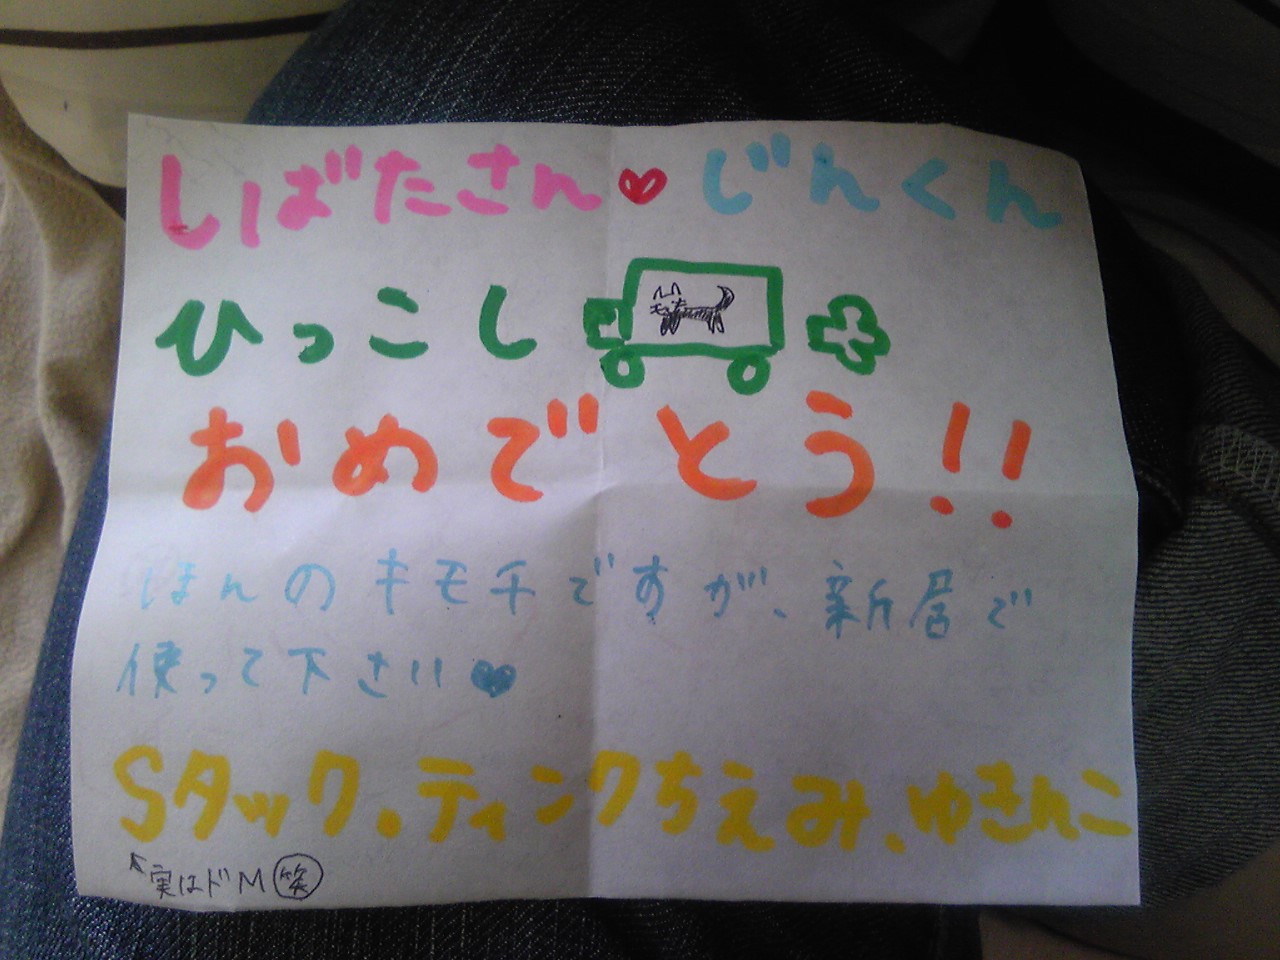 しばたさん♥じんくん
ひっこし
おめでとう!!
ほんのキモチですが、新居で
使って下さい♥
Sタック。ティンクちえみ、ゆきんこ
実はドM㊗